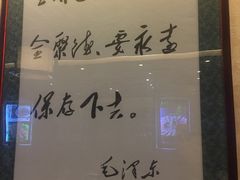 全聚德要永远
保存下去。
毛泽东